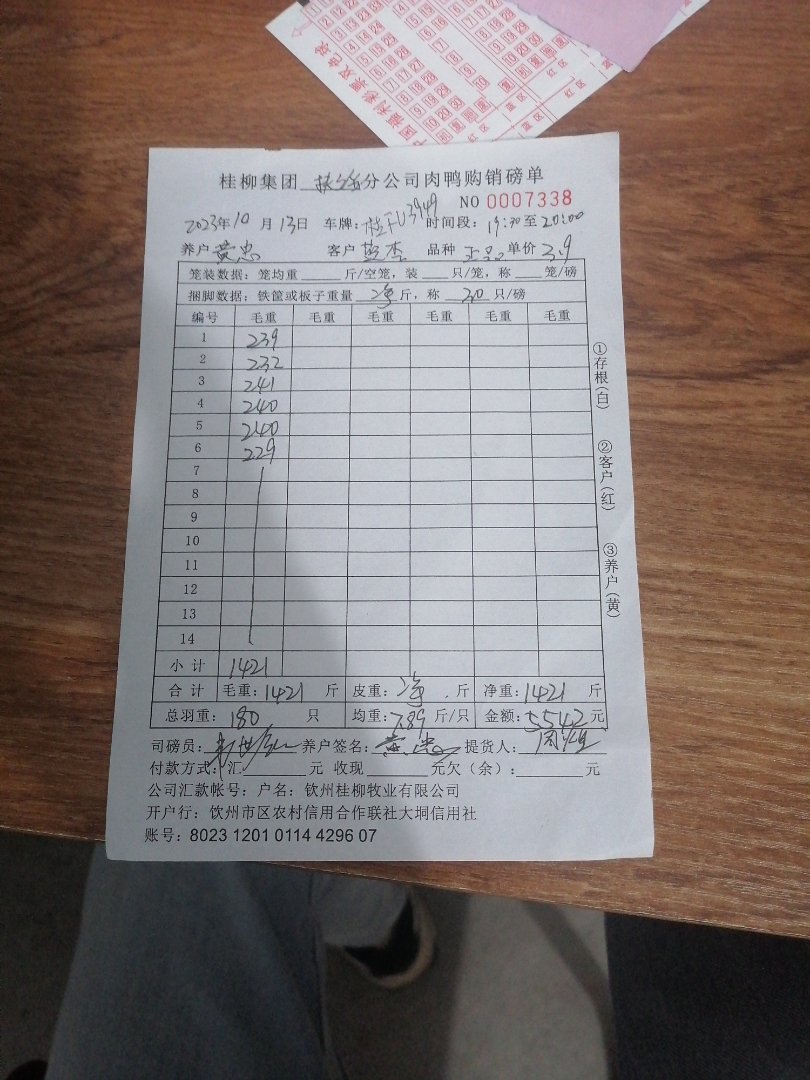 中国福利彩票双色球
桂柳集团 分公司肉鸭购销磅单
NO 0007338
2023年10月13日 车牌:桂 U3949 时间段:19:30至20:00
养户 黄忠 客户 蓝杰 品种 正品 单价 3.9
笼装数据:笼均重 斤/空笼,装 只/笼,称 笼/磅
捆脚数据:铁筐或板子重量 净 斤,称 30 只/磅
编号 毛重 毛重 毛重 毛重 毛重 毛重
1 239
2 232
3 241
4 240
5 240
6 229
7
8
9
10
11
12
13
14
小计 1421
合计 毛重:1421 斤 皮重:净 斤 净重:1421 斤
总羽重:180 只 均重:7.89 斤/只 金额:5542元
司磅员: 养户签名:黄忠 提货人:
付款方式:汇 元 收现 元欠(余): 元
公司汇款帐号:户名:钦州桂柳牧业有限公司
开户行:钦州市区农村信用合作联社大垌信用社
账号:8023 1201 0114 4296 07
①存根(白)
②客户(红)
③养户(黄)